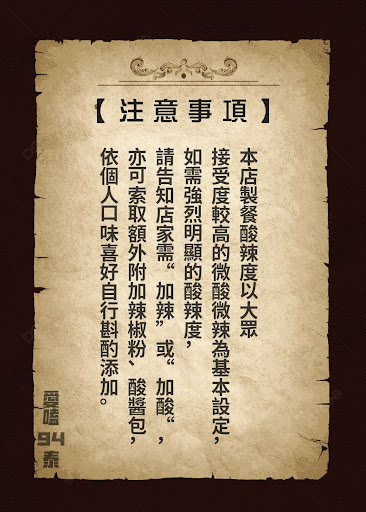 【注意事項】
本店製餐酸辣度以大眾
接受度較高的微酸微辣為基本設定，
如需強烈明顯的酸辣度，
請告知店家需“加辣”或“加酸“，
亦可索取額外附加辣椒粉、酸醬包，
依個人口味喜好自行斟酌添加。
愛嗑
94
泰